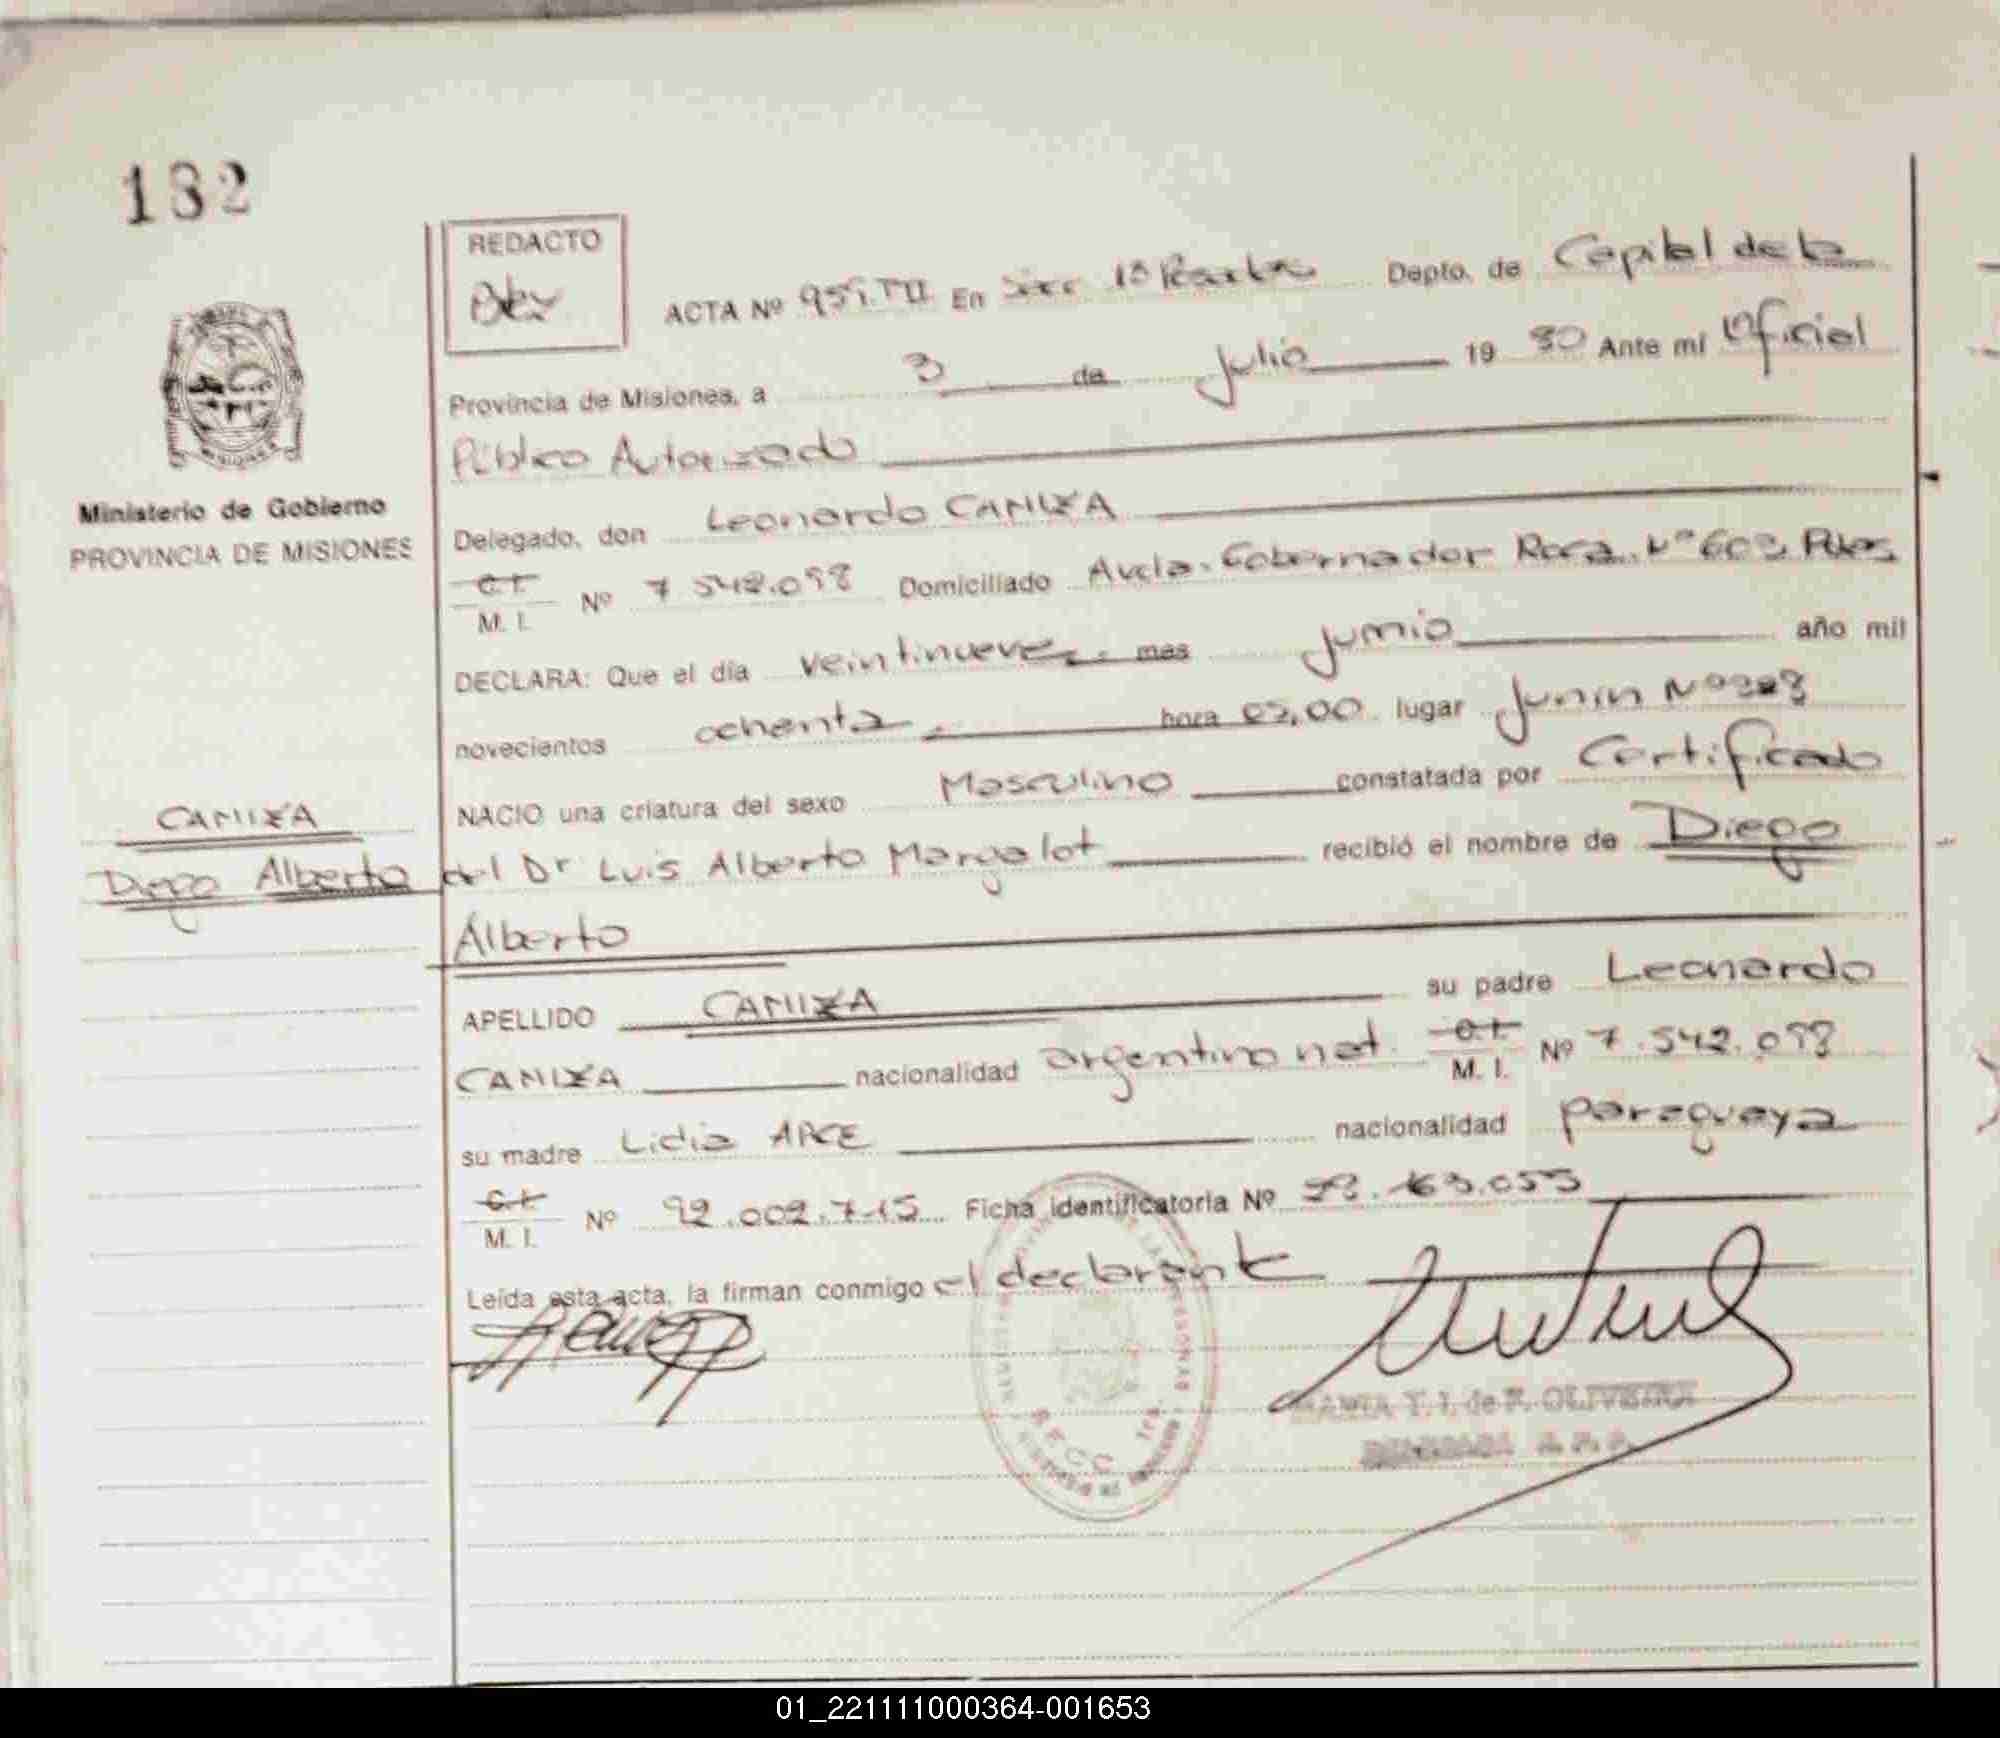 132
REDACTO
ACTA Nº 951. TII En 1ª Depto. de Capital de la
Provincia de Misiones, a 3 de Julio 19 80 Ante mí Oficial
Público Autorizado
Ministerio de Gobierno
PROVINCIA DE MISIONES
Delegado, don Leonardo CANIZA
C.I.
M. I. Nº 7 542.098 Domiciliado Avda. Gobernador Roca. Nº 603. Pdas
DECLARA: Que el día veintinueve. mes junio año mil
novecientos ochenta. hora 03,00 lugar Junin Nº
NACIO una criatura del sexo Masculino constatada por Certificado
CANIZA
Diego Alberto
del Dr Luis Alberto Margalot recibió el nombre de Diego
Alberto
APELLIDO CANIZA su padre Leonardo
CANIZA nacionalidad argentino nat. C.I.
M. I. Nº 7.542.098
su madre Lidia ARCE nacionalidad paraguaya
C.I.
M. I. Nº 92.002.715 Ficha identificatoria Nº
Leída esta acta, la firman conmigo el declarante
OLIVEIRA
01_221111000364-001653